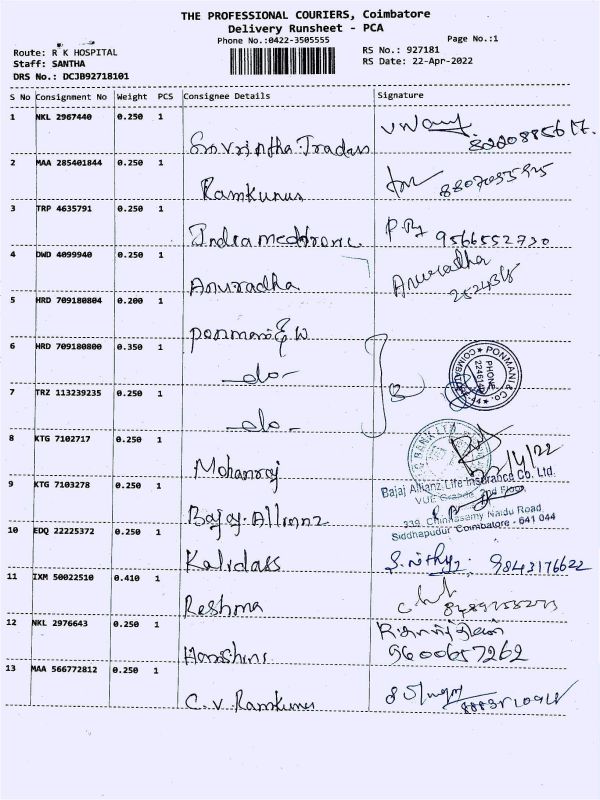 THE PROFESSIONAL COURIERS, Coimbatore
Delivery Runsheet - PCA
Phone No.:0422-3505555
Page No.:1
Route: R K HOSPITAL
RS No.: 927181
Staff: SANTHA
RS Date: 22-Apr-2022
DRS No.: DC3B92718101
S No Consignment No Weight PCS Consignee Details Signature
1 NKL 2967440 0.250 1
2 MAA 285401844 0.250 1
Ramkumar
3 TRP 4635791 0.250 1
9566552730
4 DWD 4099940 0.250 1
Anuradha Anuradha
5 HRD 709180804 0.200 1
6 HRD 709180800 0.350 1
-do-
PONMANI & Co.
PHONE
COIMBATORE
7 TRZ 113239235 0.250 1
-do-
8 KTG 7102717 0.250 1
Mohanraj
22/4/22
9 KTG 7103278 0.250 1
Bajaj Allianz Life Insurance Co. Ltd.
VUE Grande 2nd Floor
Bajaj Allianz
339, Chinnasamy Naidu Road,
Siddhapudur Coimbatore - 641 044
10 EDQ 22225372 0.250 1
Kalidass 9843176622
11 IXM 50022510 0.410 1
Reshma
12 NKL 2976643 0.250 1
9600657262
13 MAA 566772812 0.250 1
C.V. Ramkumar